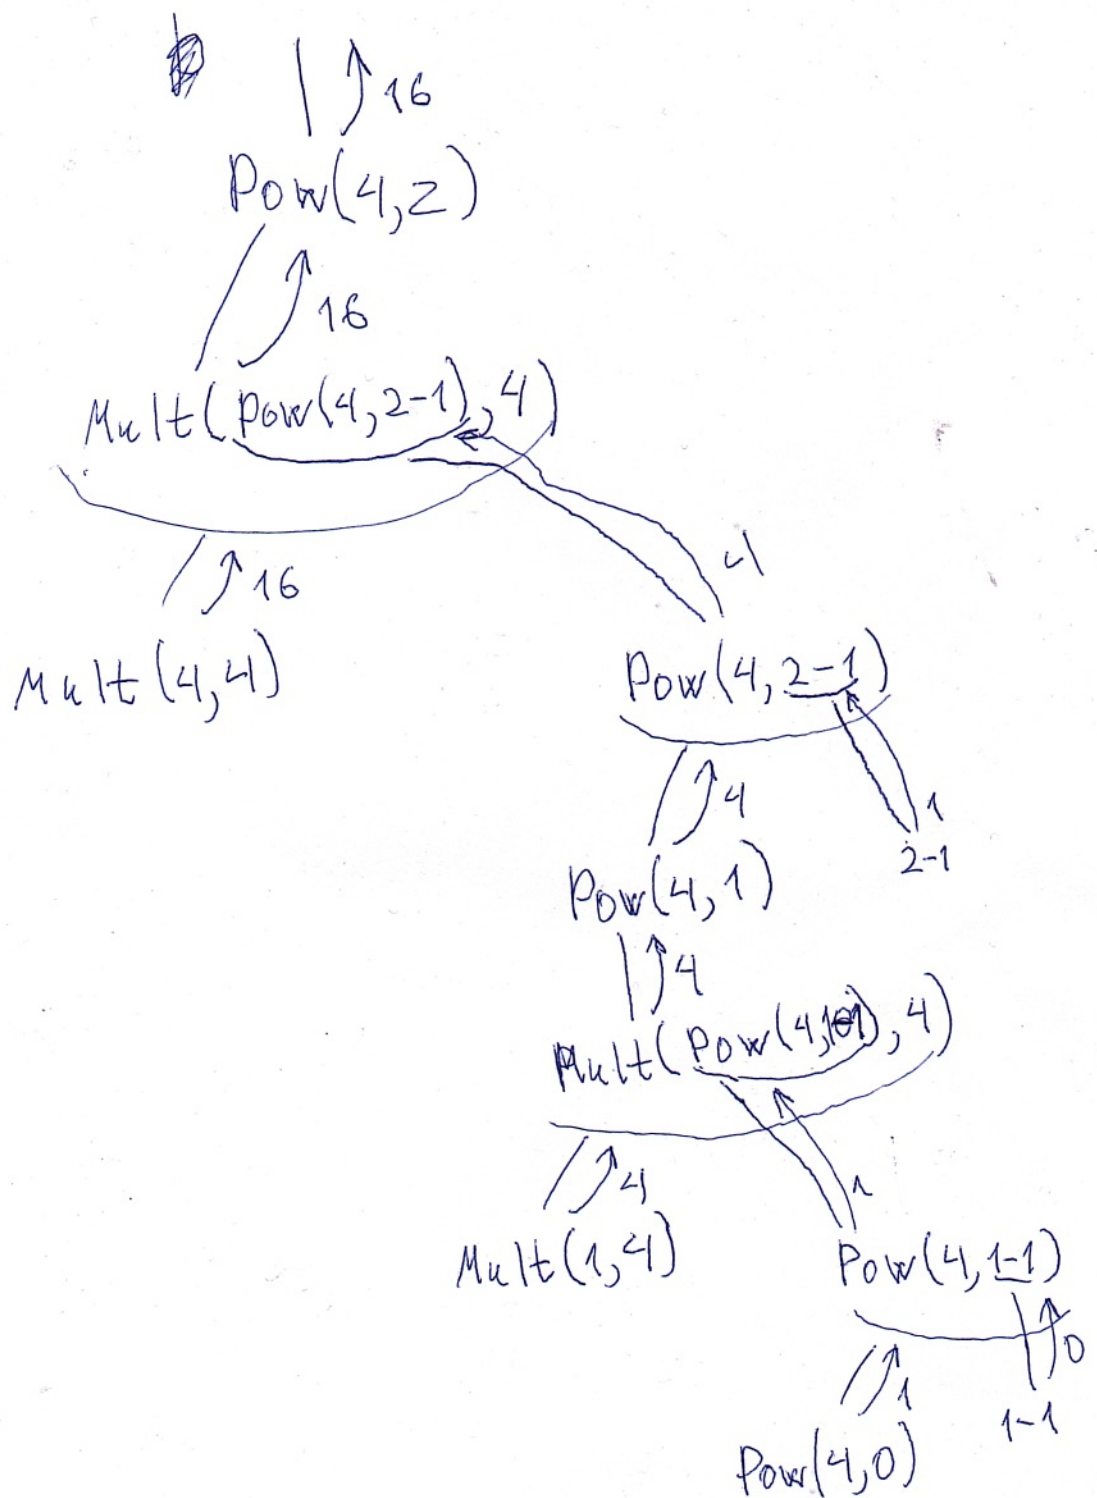 16
Pow(4,2)
16
Mult(Pow(4,2-1),4)
4
16
Mult(4,4)
Pow(4,2-1)
4
1
2-1
Pow(4,1)
4
Mult(Pow(4,1-1),4)
4
1
Mult(1,4)
Pow(4,1-1)
1
0
1-1
Pow(4,0)